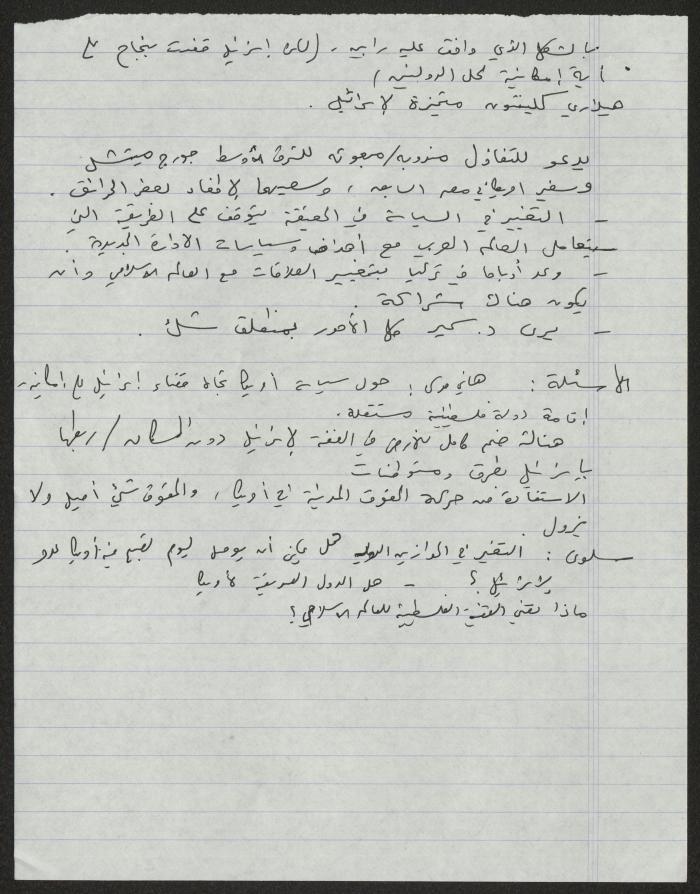 بالشكل الذي وافق عليه رابين، (لكن إسرائيل قضت بنجاح على
أية إمكانية لحل الدولتين)
هيلاري كلينتون متحيزة لإسرائيل.
يدعو للتفاؤل مندوبه/مبعوثه للشرق الأوسط جورج ميتشل
وسفير امريكا في مصر السابق، وسعيهما لإطفاء بعض الحرائق.
- التغيير في السياسة في الحقيقة يتوقف على الطريقة التي
سيتعامل العالم العربي مع أهداف وسياسات الادارة الجديدة.
- وعد أوباما في تركيا بتغيير العلاقات مع العالم الاسلامي وأن
يكون هناك شراكة.
- يرى د. سمير كل الأمور بمنطلق شك.
الأسئلة: هاني موسى: حول سياسة أمريكا تجاه قضاء إسرائيل على إمكانية
إقامة دولة فلسطينية مستقلة.
هنالك ضم كامل للأرض في الضفة لإسرائيل دون السكان/ربطها
بإسرائيل بطرق ومستوطنات
الاستفادة من حركة الحقوق المدنية في أمريكا، والحقوق شيء أصيل ولا
يزول.
سلوى: التغير في الموازين الدولية هل يمكن أن يوصل ليوم تصبح فيه أمريكا عدو
لإسرائيل؟ - هل الدول الصديقة لأمريكا
ماذا تعني القضية الفلسطينية للعالم الاسلامي؟